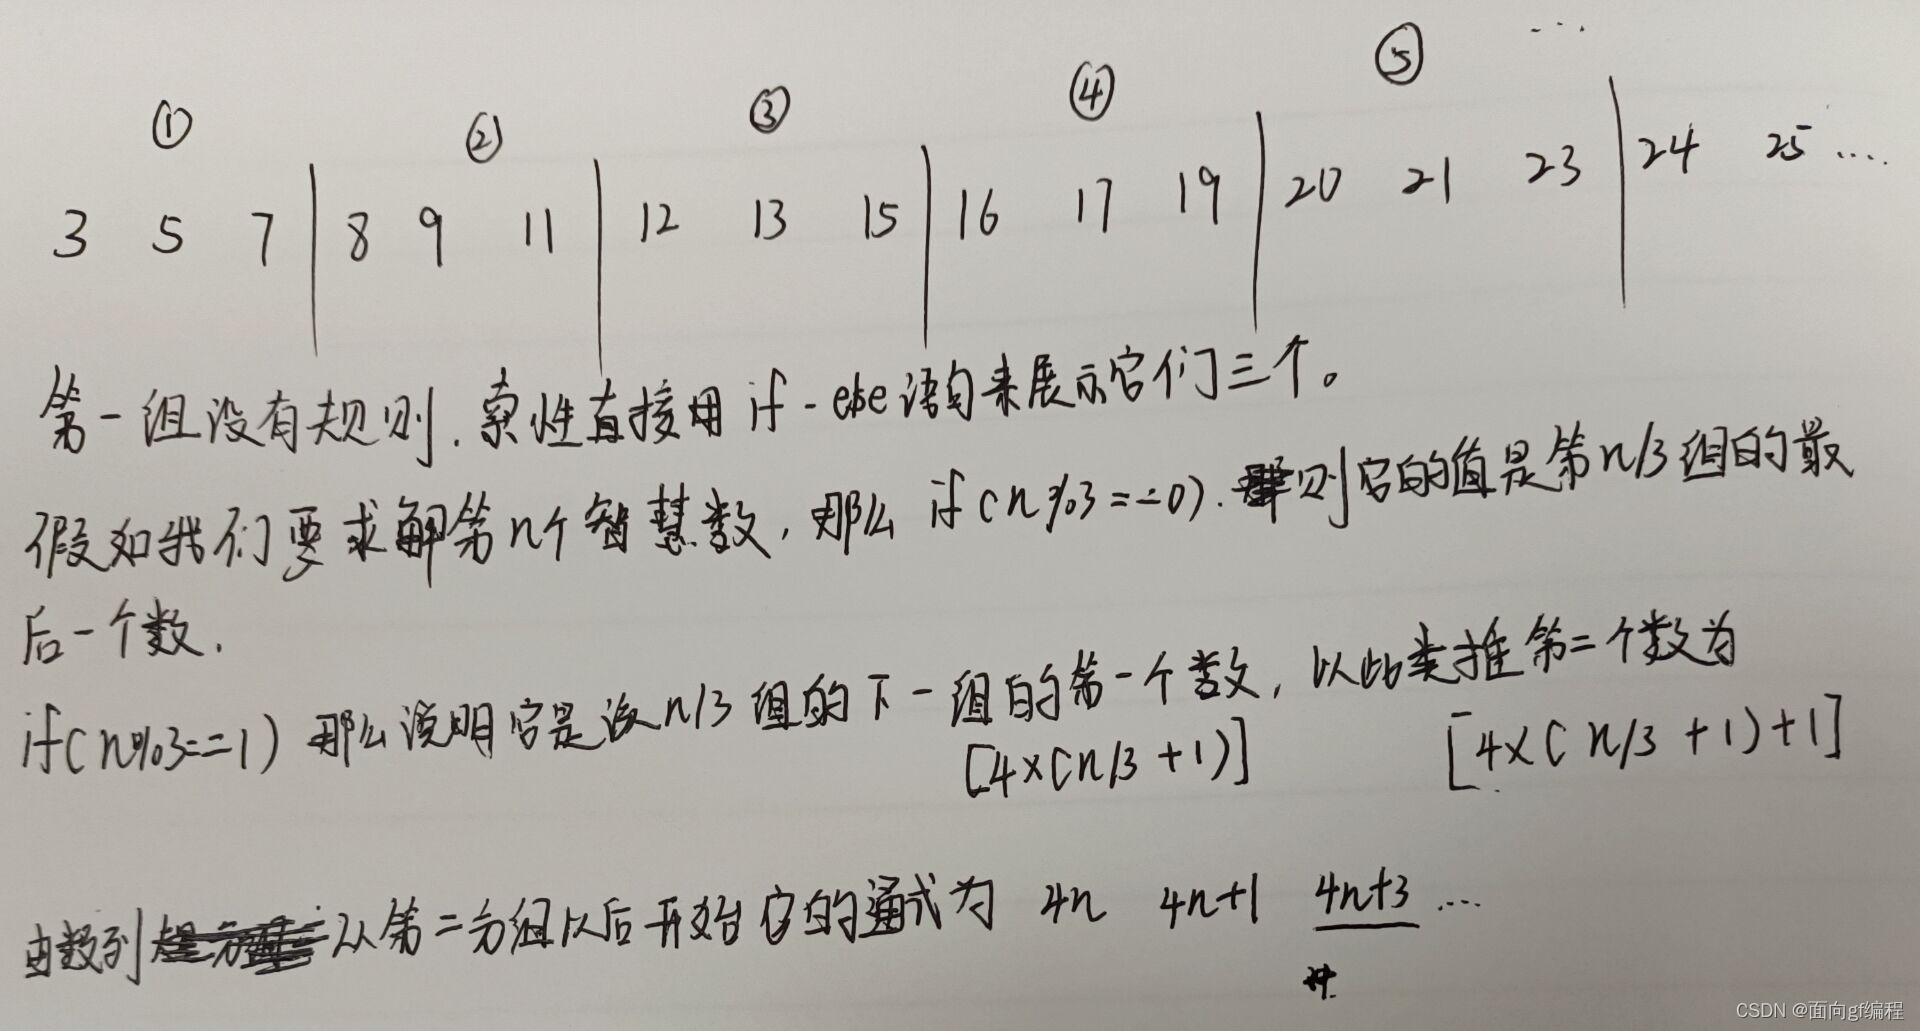 ① ② ③ ④ ⑤ ...
3 5 7 | 8 9 11 | 12 13 15 | 16 17 19 | 20 21 23 | 24 25 ....
第一组没有规则.索性直接用 if-else 语句来展示它们三个。
假如我们要求解第n个智慧数,那么 if(n%3==0). 则它的值是第n/3组的最
后一个数.
if(n%3==1) 那么说明它是该n/3组的下一组的第一个数,以此类推第二个数为
[4×(n/3+1)] [4×(n/3+1)+1]
由数列 以第二分组以后开始它的通式为 4n 4n+1 4n+3 ...
CSDN @面向gf编程